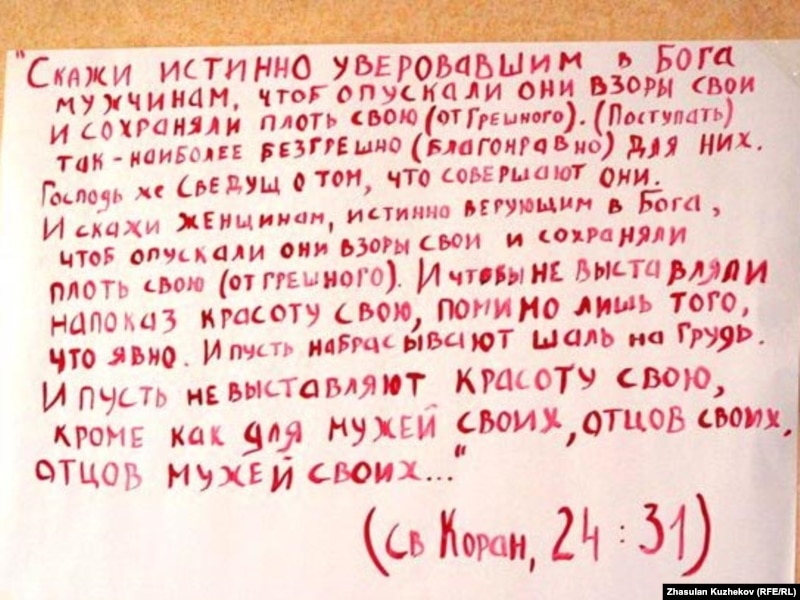 "Скажи истинно уверовавшим в Бога
мужчинам, чтоб опускали они взоры свои
и сохраняли плоть свою (от грешного). (Поступать)
так - наиболее безгрешно (благонравно) для них.
Господь же сведущ о том, что совершают они.
И скажи женщинам, истинно верующим в Бога,
чтоб опускали они взоры свои и сохраняли
плоть свою (от грешного). И чтобы не выставляли
напоказ красоту свою, помимо лишь того,
что явно. И пусть набрасывают шаль на грудь.
И пусть не выставляют красоту свою,
кроме как для мужей своих, отцов своих,
отцов мужей своих..."
(Св Коран, 24 : 31)
Zhasulan Kuzhekov (RFE/RL)